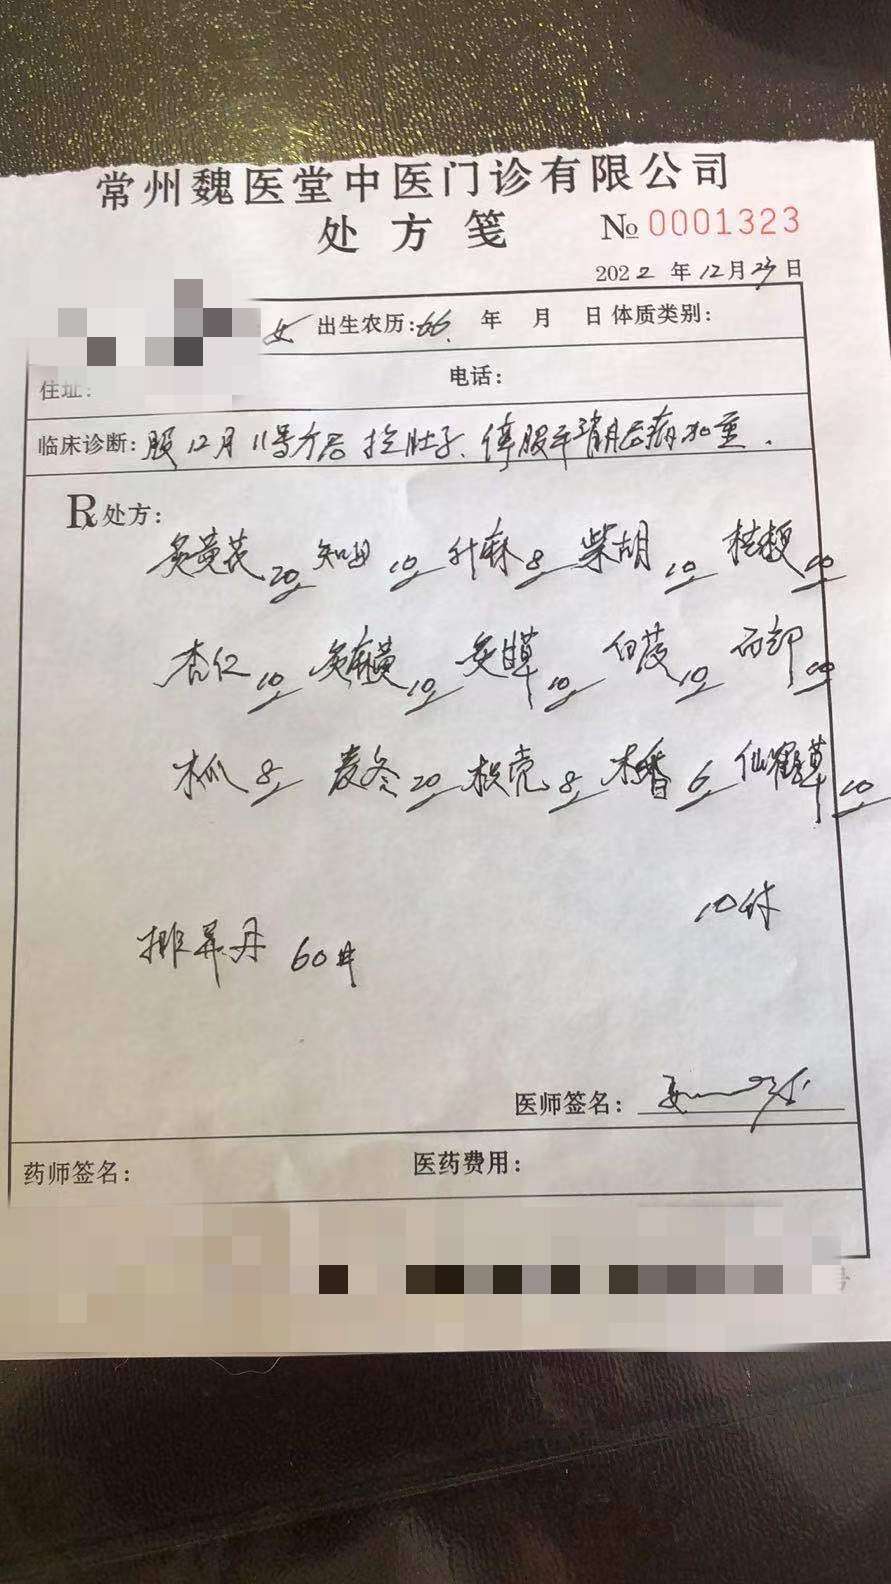 常州魏医堂中医门诊有限公司
处方笺 № 0001323
2022年12月23日
女 出生农历:66. 年 月 日 体质类别:
住址: 电话:
临床诊断: 服12月11号方后 拉肚子、停服 病加重.
R 处方:
炙黄芪20 知母10 升麻8 柴胡10 桔梗10
杏仁10 炙麻黄10 炙甘草10 10 10
木瓜8 麦冬20 枳壳8 木香6 仙鹤草10
10
排 丹 60
医师签名:
药师签名: 医药费用:
号